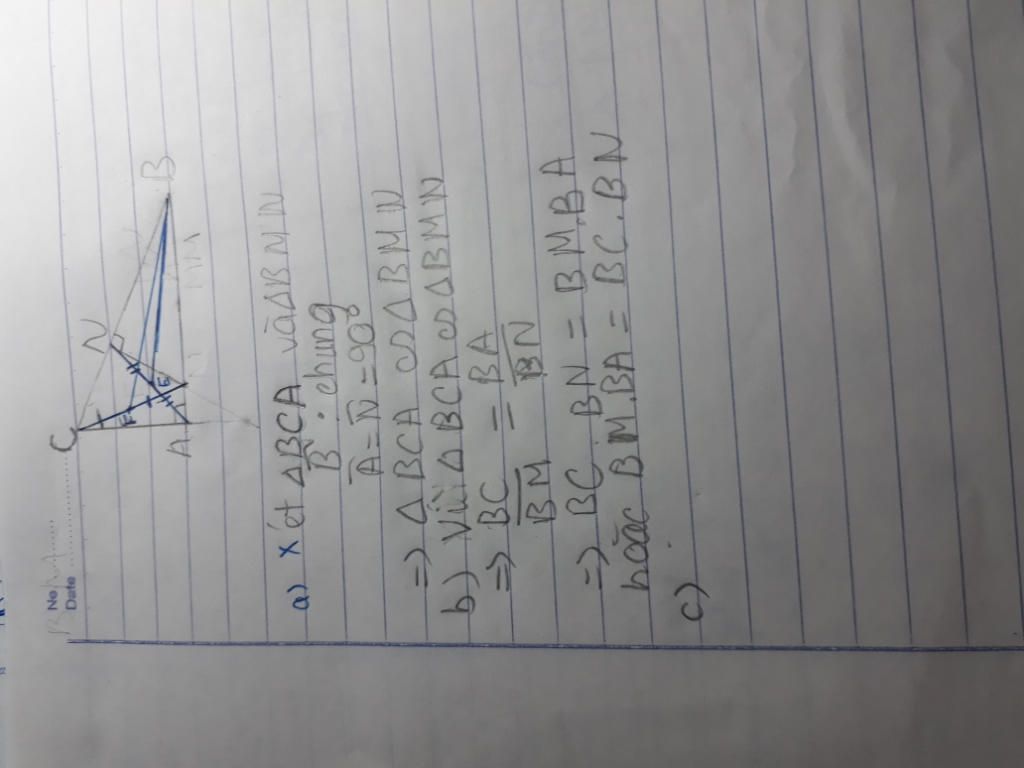 No.
Date
C
N
B
F
E
A
a) xét ΔBCA và ΔBMN
B̅ : chung
A̅ = N̅ = 90°
=> ΔBCA ∽ ΔBMN
b) Vì ΔBCA ∽ ΔBMN
=> BC/BM = BA/BN
=> BC. BN = BM.BA
hoặc BM.BA = BC.BN
c)